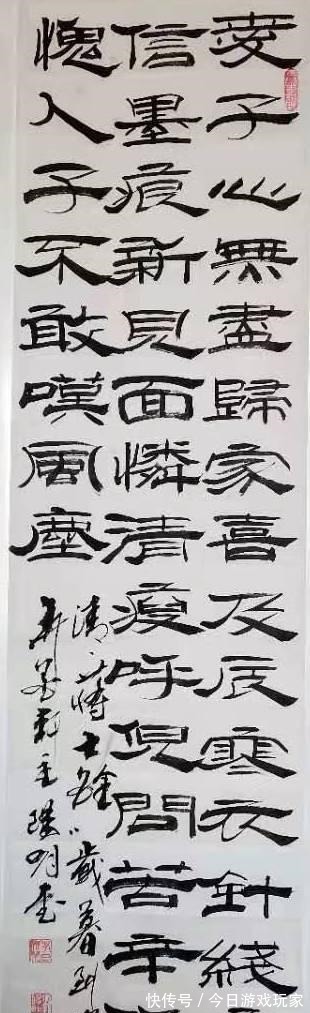 愛子心無盡歸家喜及辰寒衣針綫
信墨痕新見面憐清瘦呼兒問苦辛
愧人子不敢嘆風塵
清·蔣士銓·歲暮到
快传号/今日游戏玩家